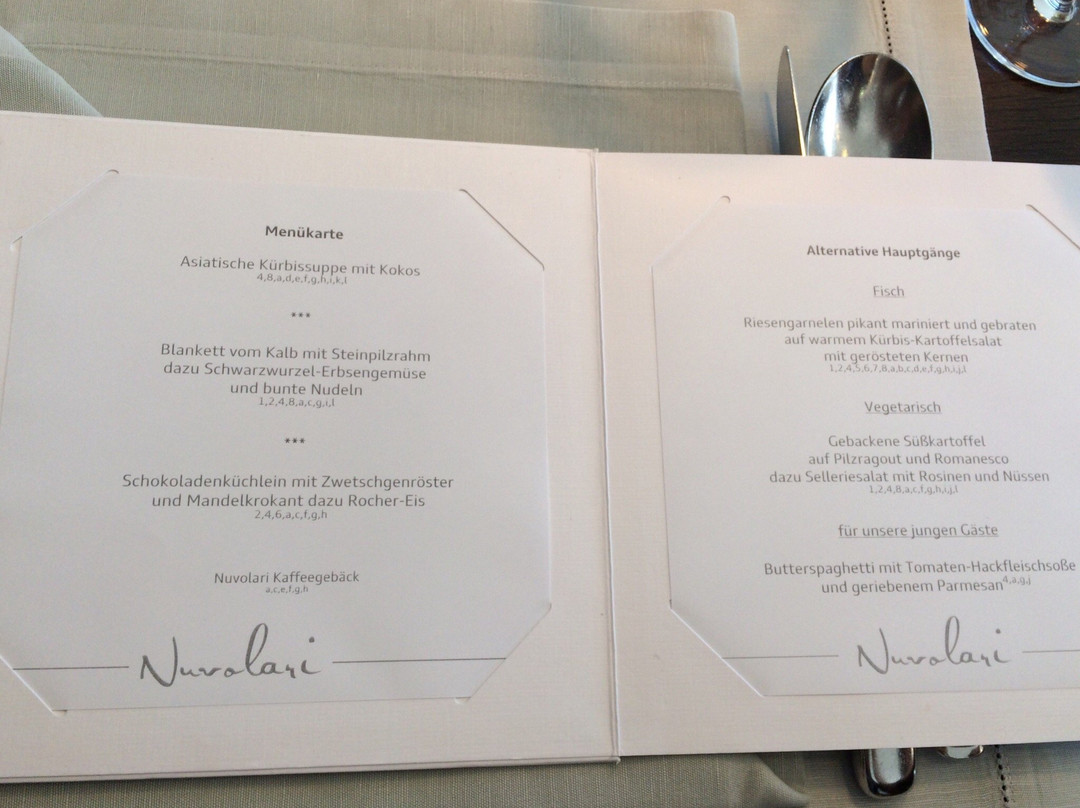 Menükarte
Asiatische Kürbissuppe mit Kokos
4,8,a,d,e,f,g,h,i,k,l
***
Blankett vom Kalb mit Steinpilzrahm
dazu Schwarzwurzel-Erbsengemüse
und bunte Nudeln
1,2,4,8,a,c,g,i,l
***
Schokoladenküchlein mit Zwetschgenröster
und Mandelkrokant dazu Rocher-Eis
2,4,6,a,c,f,g,h
Nuvolari Kaffeegebäck
a,c,e,f,g,h
Nuvolari
Alternative Hauptgänge
Fisch
Riesengarnelen pikant mariniert und gebraten
auf warmem Kürbis-Kartoffelsalat
mit gerösteten Kernen
1,2,4,5,6,7,8,a,b,c,d,e,f,g,h,i,j,l
Vegetarisch
Gebackene Süßkartoffel
auf Pilzragout und Romanesco
dazu Selleriesalat mit Rosinen und Nüssen
1,2,4,8,a,c,f,g,h,i,j,l
für unsere jungen Gäste
Butterspaghetti mit Tomaten-Hackfleischsoße
und geriebenem Parmesan4,a,g,j
Nuvolari